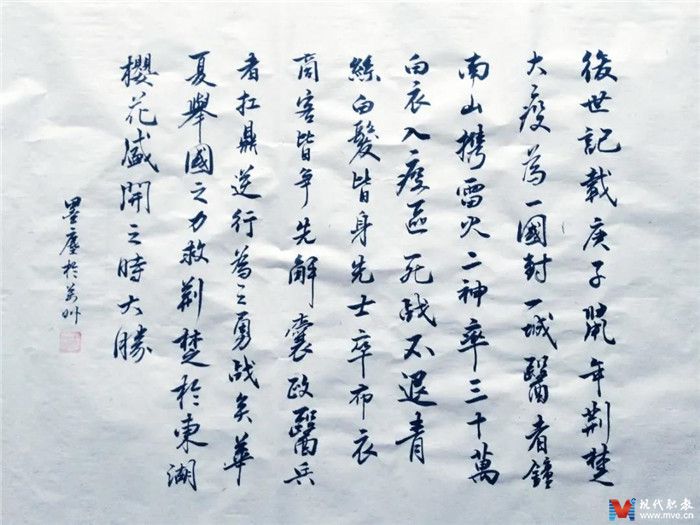 後世記載庚子鼠年荆楚
大疫為一國封一城醫者鐘
南山携雷火二神率三十萬
白衣入疫區死战不退青
絲白髮皆身先士卒布衣
商客皆争先解囊政醫兵
者扛鼎逆行為之勇战矣華
夏舉國之力救荆楚於東湖
櫻花盛開之時大勝
墨塵於州
现代职教
www.mve.cn